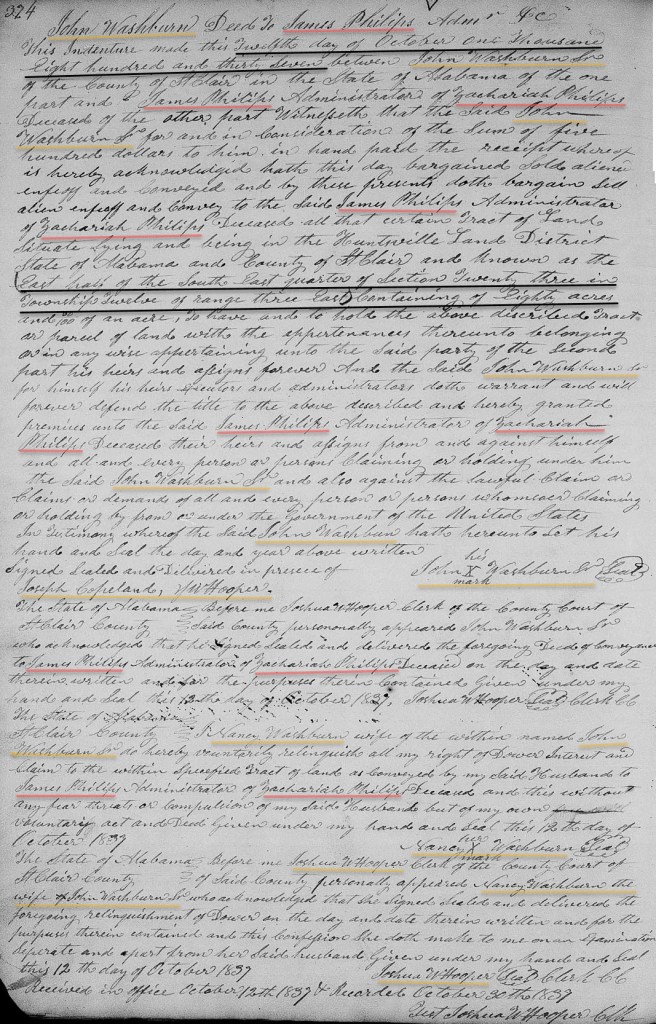 324
John Washburn Deed To James Philips Admr &c
This Indenture made this Twelfth day of October One Thousand
Eight hundred and thirty Seven between John Washburn Sr
of the County of St Clair in the State of Alabama of the one
part and James Philips Administrator of Zachariah Philips
Deceased of the other part Witnesseth that the Said John
Washburn Sr for and in Consideration of the Sum of five
hundred dollars to him in hand paid the receipt whereof
is hereby acknowledged hath this day bargained Sold aliened
enfeoff and Conveyed and by these presents doth bargain Sell
alien enfeoff and Convey to the Said James Philips Administrator
of Zachariah Philips Deceased all that certain Tract of Land
Situate lying and being in the Huntsville Land District
State of Alabama and County of St Clair and known as the
East half of the South East quarter of Section Twenty three in
Township Twelve of range three East Containing of Eighty acres
and of an acre, To have and to hold the above discribed Tract
or parcel of land with the appertenances thereunto belonging
or in any wise appertaining unto the Said party of the Second
part his heirs and assigns forever And the Said John Washburn Sr
for himself his heirs Executers and administrators doth warrant and will
forever defend the title to the above described and hereby granted
premises unto the Said James Philips Administrator of Zachariah
Philips Deceased their heirs and assigns from and against himself
and all and every person or persons Claiming or holding under him
the Said John Washburn Sr and also against the lawful Claim or
Claims or demands of all and every person or persons whomsoer Claiming
or holding by from or under the Government of the United States
In Testimony whereof the Said John Washbun hath hereunto Set his
hand and Seal the day and year above written
Signed Sealed and Delivired in presece of
his
John X Washburn Sr Seal
mark
Joseph Copeland, J W Hooper.
The State of Alabama Before me Joshua W Hooper Clerk of the County Court of
St Clair County Said County personally appeared John Washburn Sr
who acknowledged that he Signed Sealed and delivered the foregoing Deed of Conveyance
to James Philips Administrator of Zachariah Philips Deceased on the day and date
therein written and for the purposes therein Contained Given under my
hand and Seal this 12th day of October 1837, Joshua W Hooper Seal Clerk CC
The State of Alabama
St Clair County I Nancy Washburn wife of the within named John
Washburn Sr do hereby vountarily relinquish all my right of Dower Interest and
Claim to the within Specified Tract of land as Conveyed by my Said Husband to
James Philips Administrator of Zachariah Philips Deceased and this without
any fear threats or Compulsion of my Said Husband but of my own
voluntary act and Deed Given under my hand and Seal this 12th day of
October 1837
her
Nancy X Washburn Seal
mark
The State of Alabama Before me Joshua W Hooper Clerk of the County Court of
St Clair County of Said County personally appeared Nancy Washburn the
wife of John Washburn Sr who acknowledged that She Signed Sealed and delivered the
foregoing relinquishment of Dower on the day and date therein written and for the
purposes therein contained and this Confession She doth make to me on an Examination
Seperate and apart from her Said husband Given under my hand and Seal
this 12th day of October 1837
Joshua W Hooper Seal Clerk CC
Received in office October 12th 1837 & Recorded October 30th 1837
Test Joshua W Hooper Clk